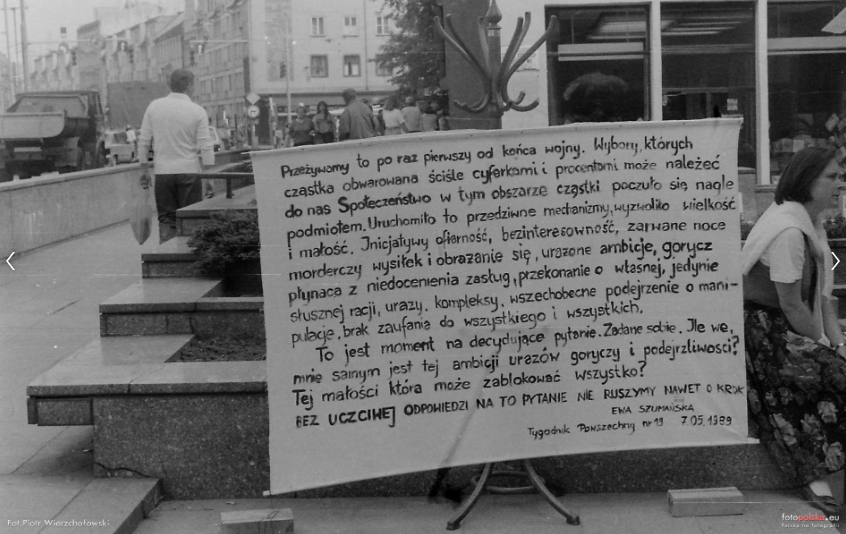 Przeżywamy to po raz pierwszy od końca wojny. Wybory, których
cząstka obwarowana ściśle cyferkami i procentami może należeć
do nas Społeczeństwo w tym obszarze cząstki poczuło się nagle
podmiotem. Uruchomiło to przedziwne mechanizmy, wyzwoliło wielkość
i małość. Inicjatywy ofiarność, bezinteresowność, zarwane noce
morderczy wysiłek i obrażanie się, urażone ambicje, gorycz
płynąca z niedocenienia zasług, przekonanie o własnej, jedynie
słusznej racji, urazy, kompleksy, wszechobecne podejrzenie o mani-
pulacje, brak zaufania do wszystkiego i wszystkich.
To jest moment na decydujące pytanie. Zadane sobie. Ile we
mnie samym jest tej ambicji urazów goryczy i podejrzliwości?
Tej małości która może zablokować wszystko?
BEZ UCZCIWEJ ODPOWIEDZI NA TO PYTANIE NIE RUSZYMY NAWET O KROK
EWA SZUMAŃSKA
Tygodnik Powszechny nr 19 7.05.1989
Fot.Piotr Wierzchołowski
fotopolska.eu
Polska na fotografii